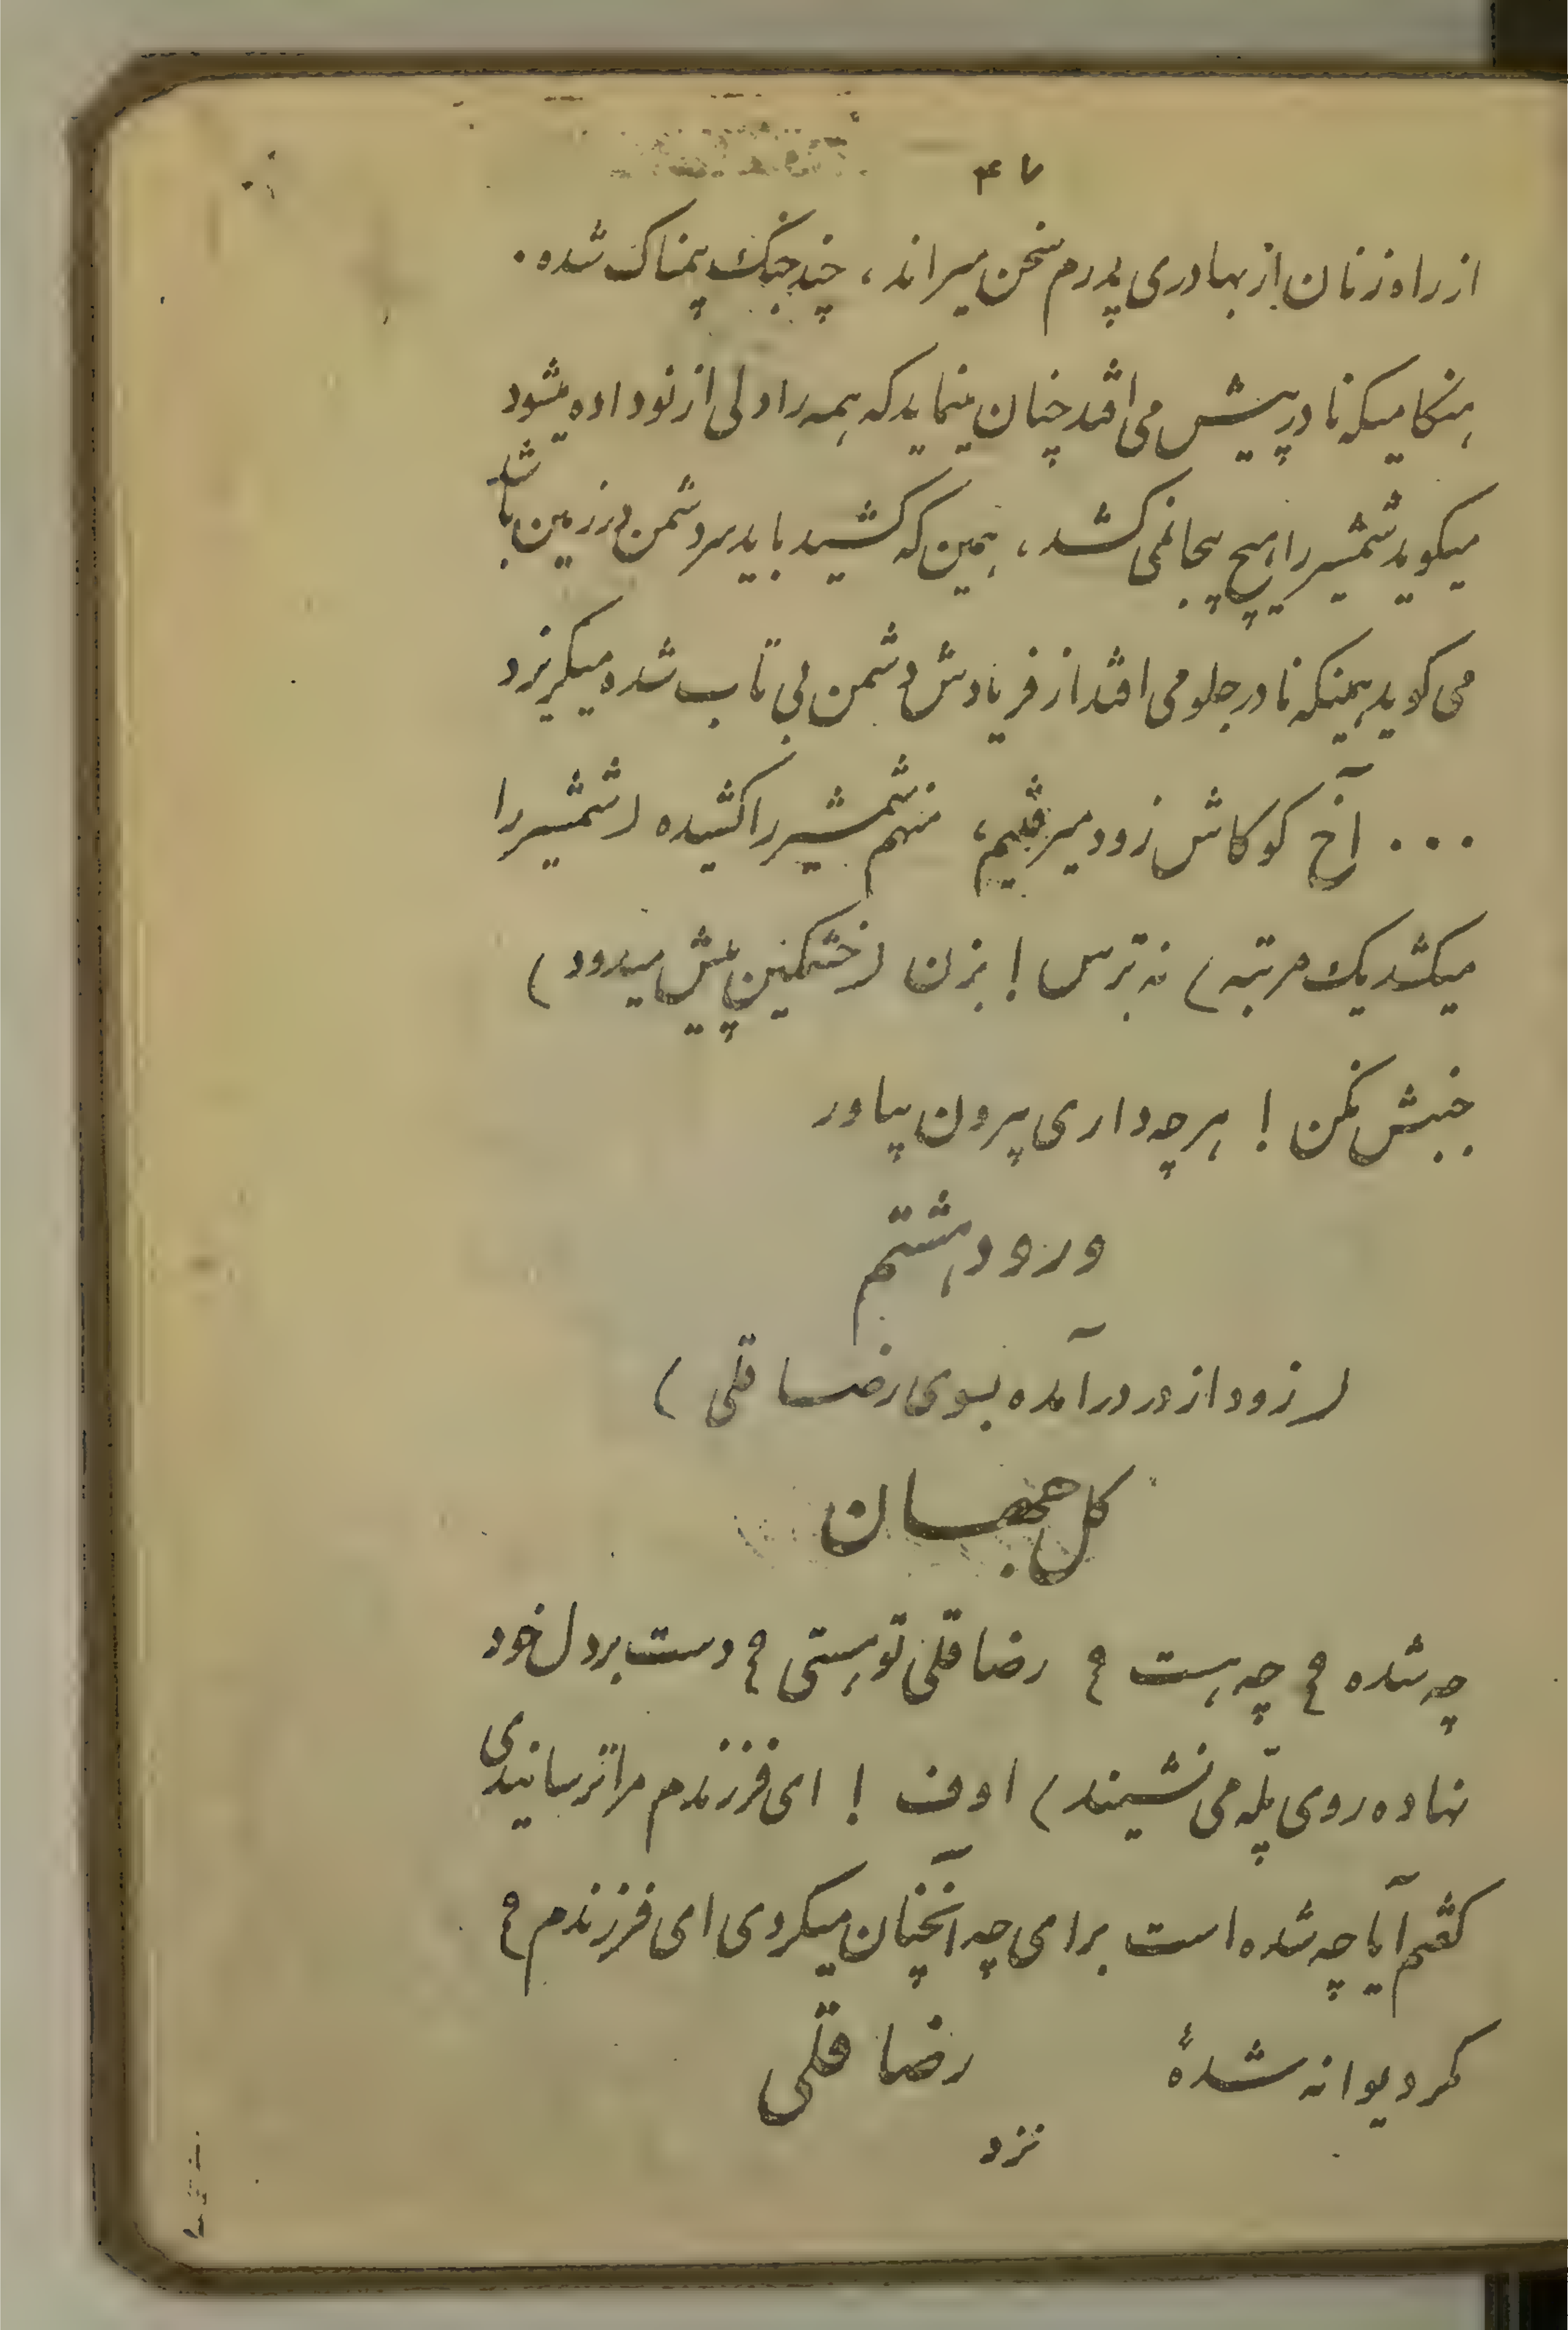 ۴۷
از راه زنان از بهادری پدرم سخن میراند، چند جنگ بیمناک شده.
هنگامیکه نادر پیش می افتد چنان مینماید که همه را دلی از نو داده میشود
میکوید شمشیر را هیچ بیجا نمی کشد، همین که کشید باید سر دشمن در زمین باشد
می کوید همینکه نادر جلو می افتد از فریادش دشمن بی تاب شده میکریزد
... آخ کو کاش زود میرفتیم، منهم شمشیر را کشیده (شمشیر را
میکشد یک مرتبه) نه ترس! بزن (خشمکین پیش میرود)
جنبش نکن! هرچه داری بیرون بیاور
ورود هشتم
(زود از در درآمده بسوی رضا قلی)
کل جهان
چه شده؟ چه هست؟ رضا قلی تو هستی؟ دست بر دل خود
نهاده روی پلّه می نشیند) اوف! ای فرزندم مرا ترسانیدی
کفتم آیا چه شده است برای چه آنچنان میکردی ای فرزندم؟
مکر دیوانه شدهٔ رضا قلی
نزد